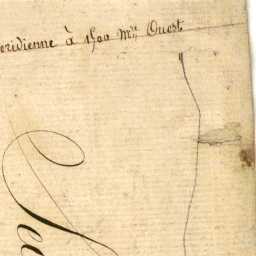 eridienne à 1500 Mtres Ouest
Sca